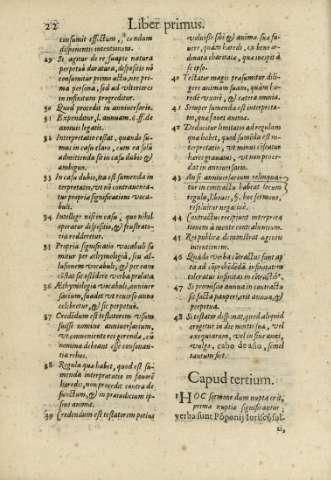 22 Liber primus.
consumit effectum, secundum
disponentis intentionem.
29 Si agatur de re suapte natura
perpetuò duratura, dispositio nõ
consumitur primo actu, nec prima
persona, sed ad vlteriores
in infinitum progreditur.
30 Quid procedit in anniuersario.
31 Expenditur, l. annuam. c. ff. de
annuis legatis.
32 Interpretatio cessat, quando sumus
in casu claro, cum ea solũ
admittenda sit in casu dubio &
ambiguo.
33 In casu dubio, ita est sumenda interpretatio,
vt nõ contraueniatur
propriæ significationi vocabuli.
34 Intellige nisi in casu, quo nihil
operatur dispositio, & frustratoria
redderetur.
35 Propria significatio vocabuli sumitur
per æthymologiã, seu allusionem
vocabuli, & per eam
cõstat se ostēdere verba prolata
36 Æthymologia vocabuli, anniuersarium,
suadet vt recurso anno
celebretur, & sic perpetuò.
37 Credēdum est testatorem vsum
fuisse nomine anniuersarium,
vt conueniente rei gerenda, cũ
nomina debeant esse consonantia
rebus.
38 Regula qua habet, quod est sumenda
interpretatio in fauorē
hæredis, non procedit contra defunctum,
& in præiudicium ipsius
animæ.
39 Credendum est testatorem potius
voluisse sibi & animæ suæ fauere,
quàm hæredi, ex bene ordinata
charitate, quæ incipit à
se ipso.
40 Testator magis præsumitur diligere
animam suam, quàm hæredē
vxorē, & cætera omnia.
41 Semper sumenda est interpretatio,
qua fouet animæ.
42 Deducitur limitatio ad regulam
qua habet, quod sumēda est interpretatio,
vt minus cēseatur
hæres grauatus, vt non procedat
in anniuersario.
43 An si anniuersarium relinquatur
in contractu habeat locum
regula, libraris, §. hoc sermone,
resoluitur negatiuè.
44 Contractus recipiunt interpretationem
à mente contrahentium.
45 Respublica demonstrat agentis
intentionem.
46 Quãdo verba cõtractus sunt apta
ad cõprehēdēdã dispositionem
toleratur insinitas in cõtractib9.
47 Si promissio annua in contractu
sit facta pauperi, erit annua, &
perpetua.
48 Si testator disponat, quod aliquid
erogetur in die mortis suæ, vel
exequiarum, vel in fine anni,
vulgo, cabo de año, semel
tantum fiet.
Caput tertium.
1 HOC sermone dum nupta erit,
prima nuptia significantur;
verba sunt Põponij Iurisc̃solti,